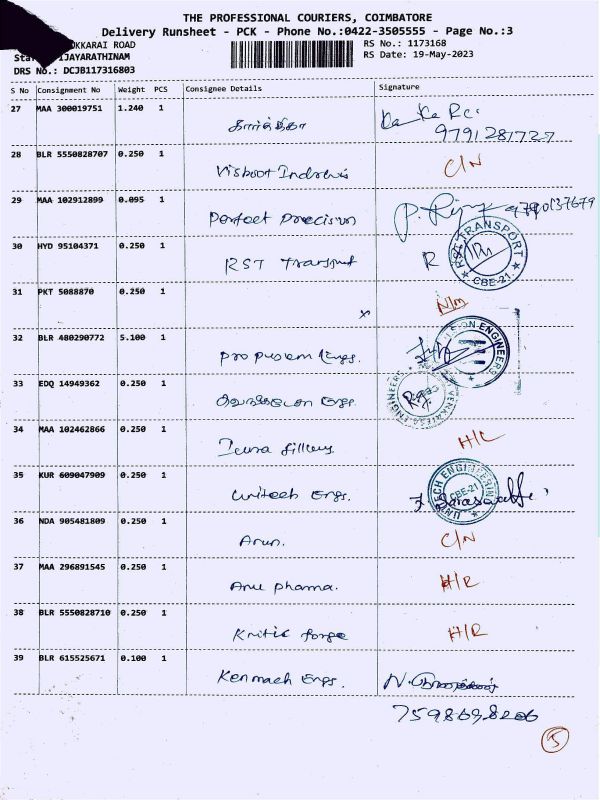 THE PROFESSIONAL COURIERS, COIMBATORE
Delivery Runsheet - PCK - Phone No.:0422-3505555 - Page No.:3
OKKARAI ROAD RS No.: 1173168
IJAYARATHINAM RS Date: 19-May-2023
DRS No.: DCJB117316803
S No Consignment No Weight PCS Consignee Details Signature
27 MAA 300019751 1.240 1
9791281727
28 BLR 5550828707 0.250 1
C/N
29 MAA 102912899 0.095 1
Perfect Precision P.
30 HYD 95104371 0.250 1
RST Transport R
RST TRANSPORT CBE-21
31 PKT 5088870 0.250 1
x N/M
32 BLR 480290772 5.100 1
ENGINEERS
33 EDQ 14949362 0.250 1
Engs. VENKATESA ENGINEERS
34 MAA 102462866 0.250 1
H/L
35 KUR 609047909 0.250 1
Unitech Engs. UNITECH ENGINEERING CBE-21
36 NDA 905481809 0.250 1
Arun. C/N
37 MAA 296891545 0.250 1
Anu pharma. H/R
38 BLR 5550828710 0.250 1
Kritic forge H/R
39 BLR 615525671 0.100 1
Kenmach Engs. N.
5